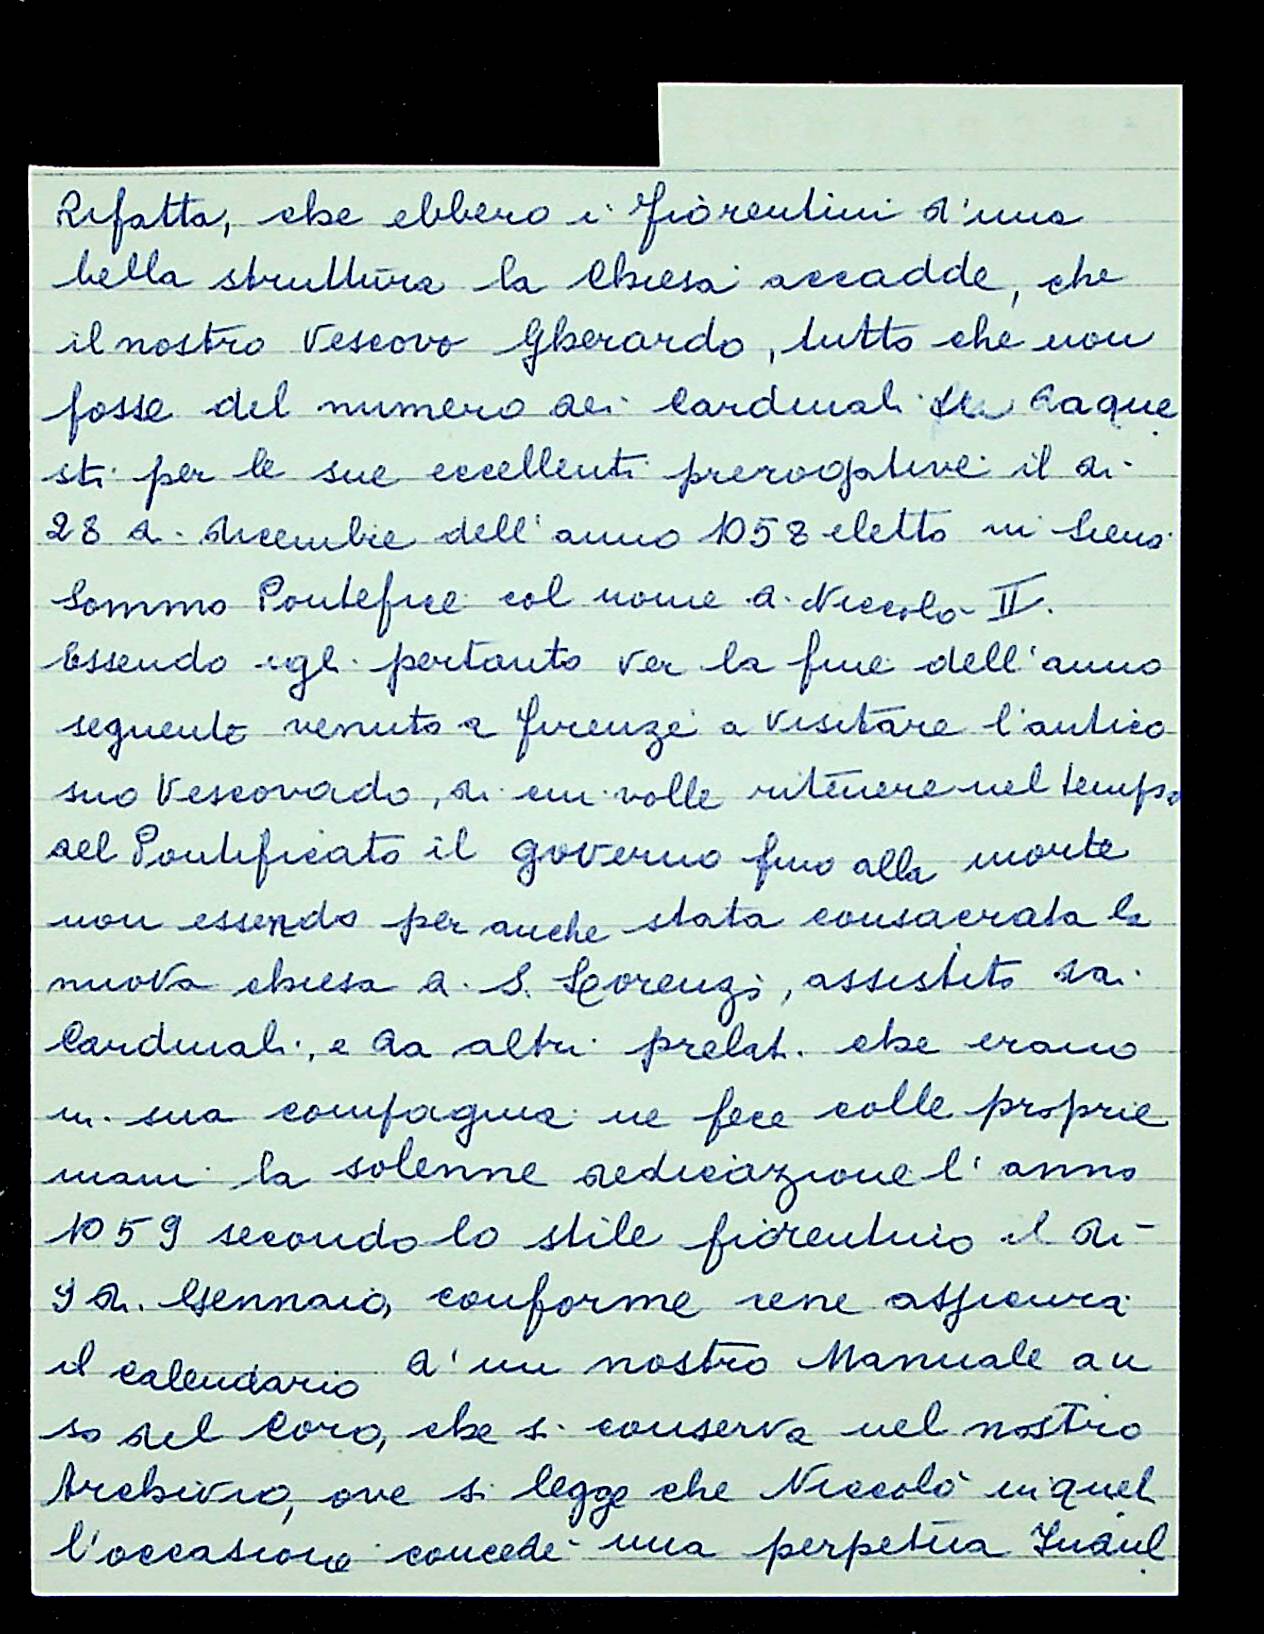 Rifatta, che ebbero i Fiorentini d'una
bella struttura la Chiesa accadde, che
il nostro Vescovo Gherardo, tutto che non
fosse del numero dei Cardinali da que
sti per le sue eccellenti prerogative il di
28 di dicembre dell'anno 1058 eletto in Siena
Sommo Pontefice col nome di Niccolò II.
Essendo egli pertanto ver la fine dell'anno
seguente venuto a Firenze a visitare l'antico
suo Vescovado, di cui volle ritenere nel tempo
del Pontificato il governo fino alla morte
non essendo per anche stata consacrata la
nuova chiesa di S. Lorenzo, assistito dai
Cardinali, e da altri prelati che erano
in sua compagnia ne fece colle proprie
mani la solenne dedicazione l'anno
1059 secondo lo stile fiorentino il dì
9 di Gennaio, conforme cene assicura
il calendario d'un nostro Manuale a u
so del Coro, che si conserva nel nostro
Archivio, ove si legge che Niccolò in quel
l'occasione concedè una perpetua Indul